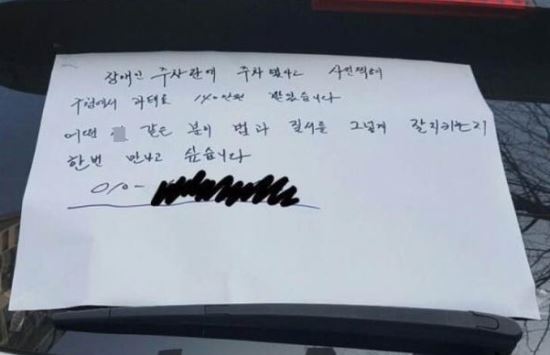 장애인 주차란에 주차 했다고 사진찍어
구청에서 과태료 140만원 받았습니다
어떤 같은 분이 법과 질서를 그렇게 잘지키는지
한번 만나고 싶습니다
010-